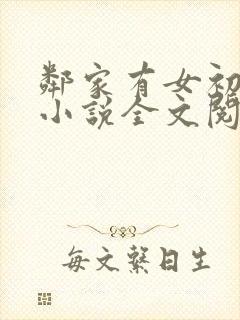 鄰家有女初
小說全文閱
每文繫日生